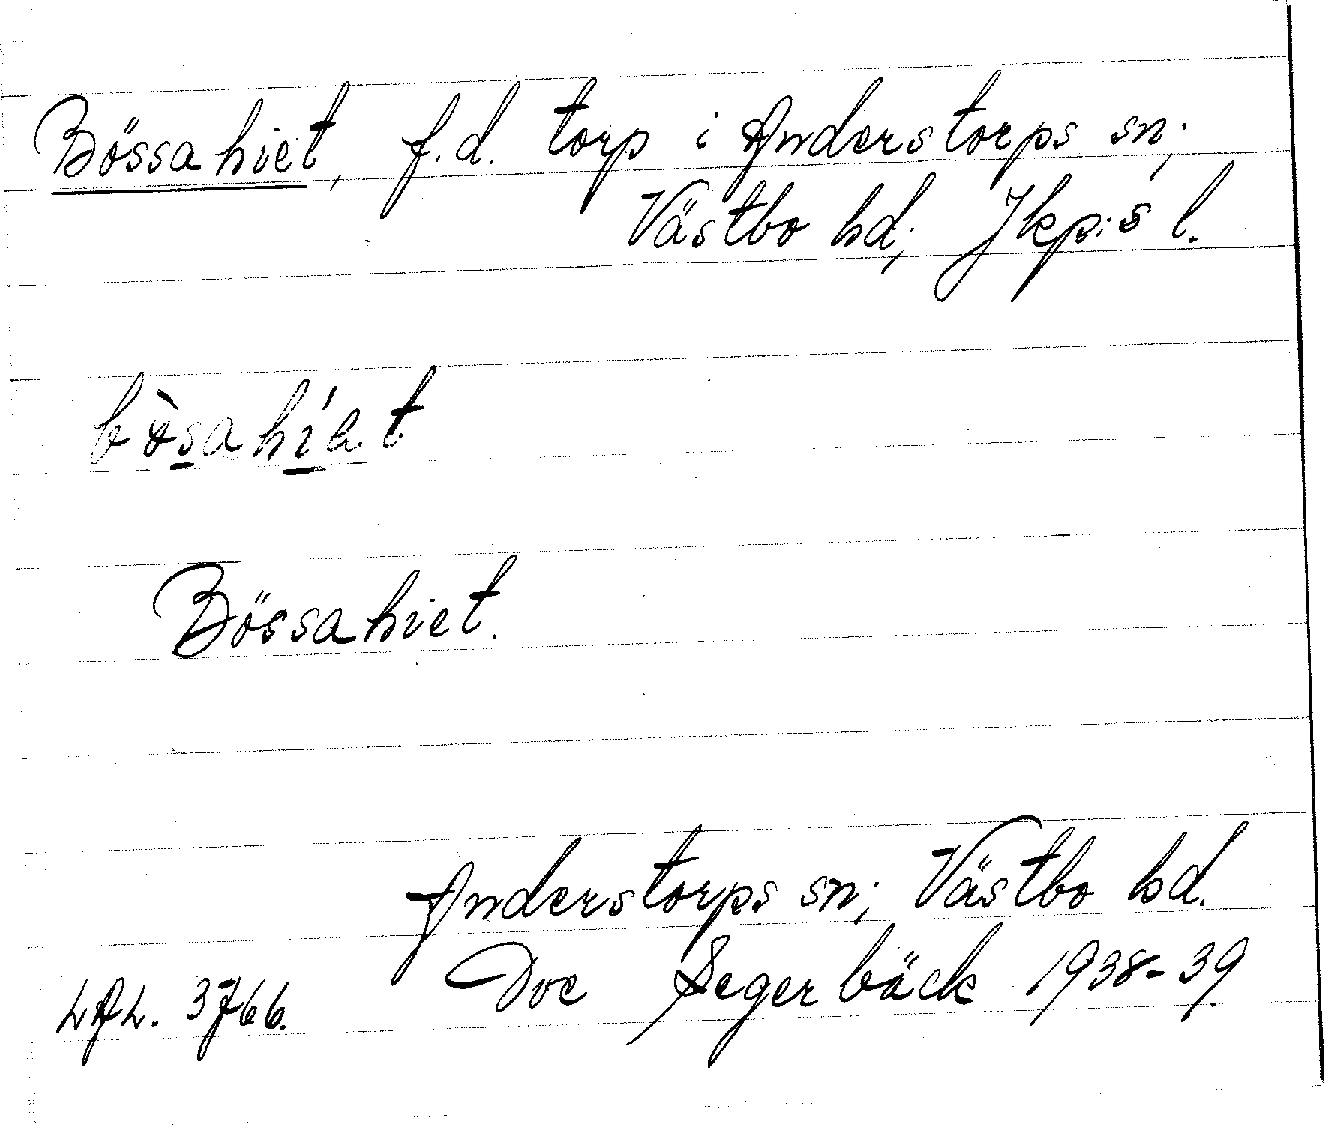 Bössahiet, f.d. torp i Anderstorps sn;
Västbo hd; Jkp:s l.
bø̀sahíɛt
Bössahiet.
Anderstorps sn; Västbo hd.
LAL. 3766. Ove Segerbäck 1938-39.